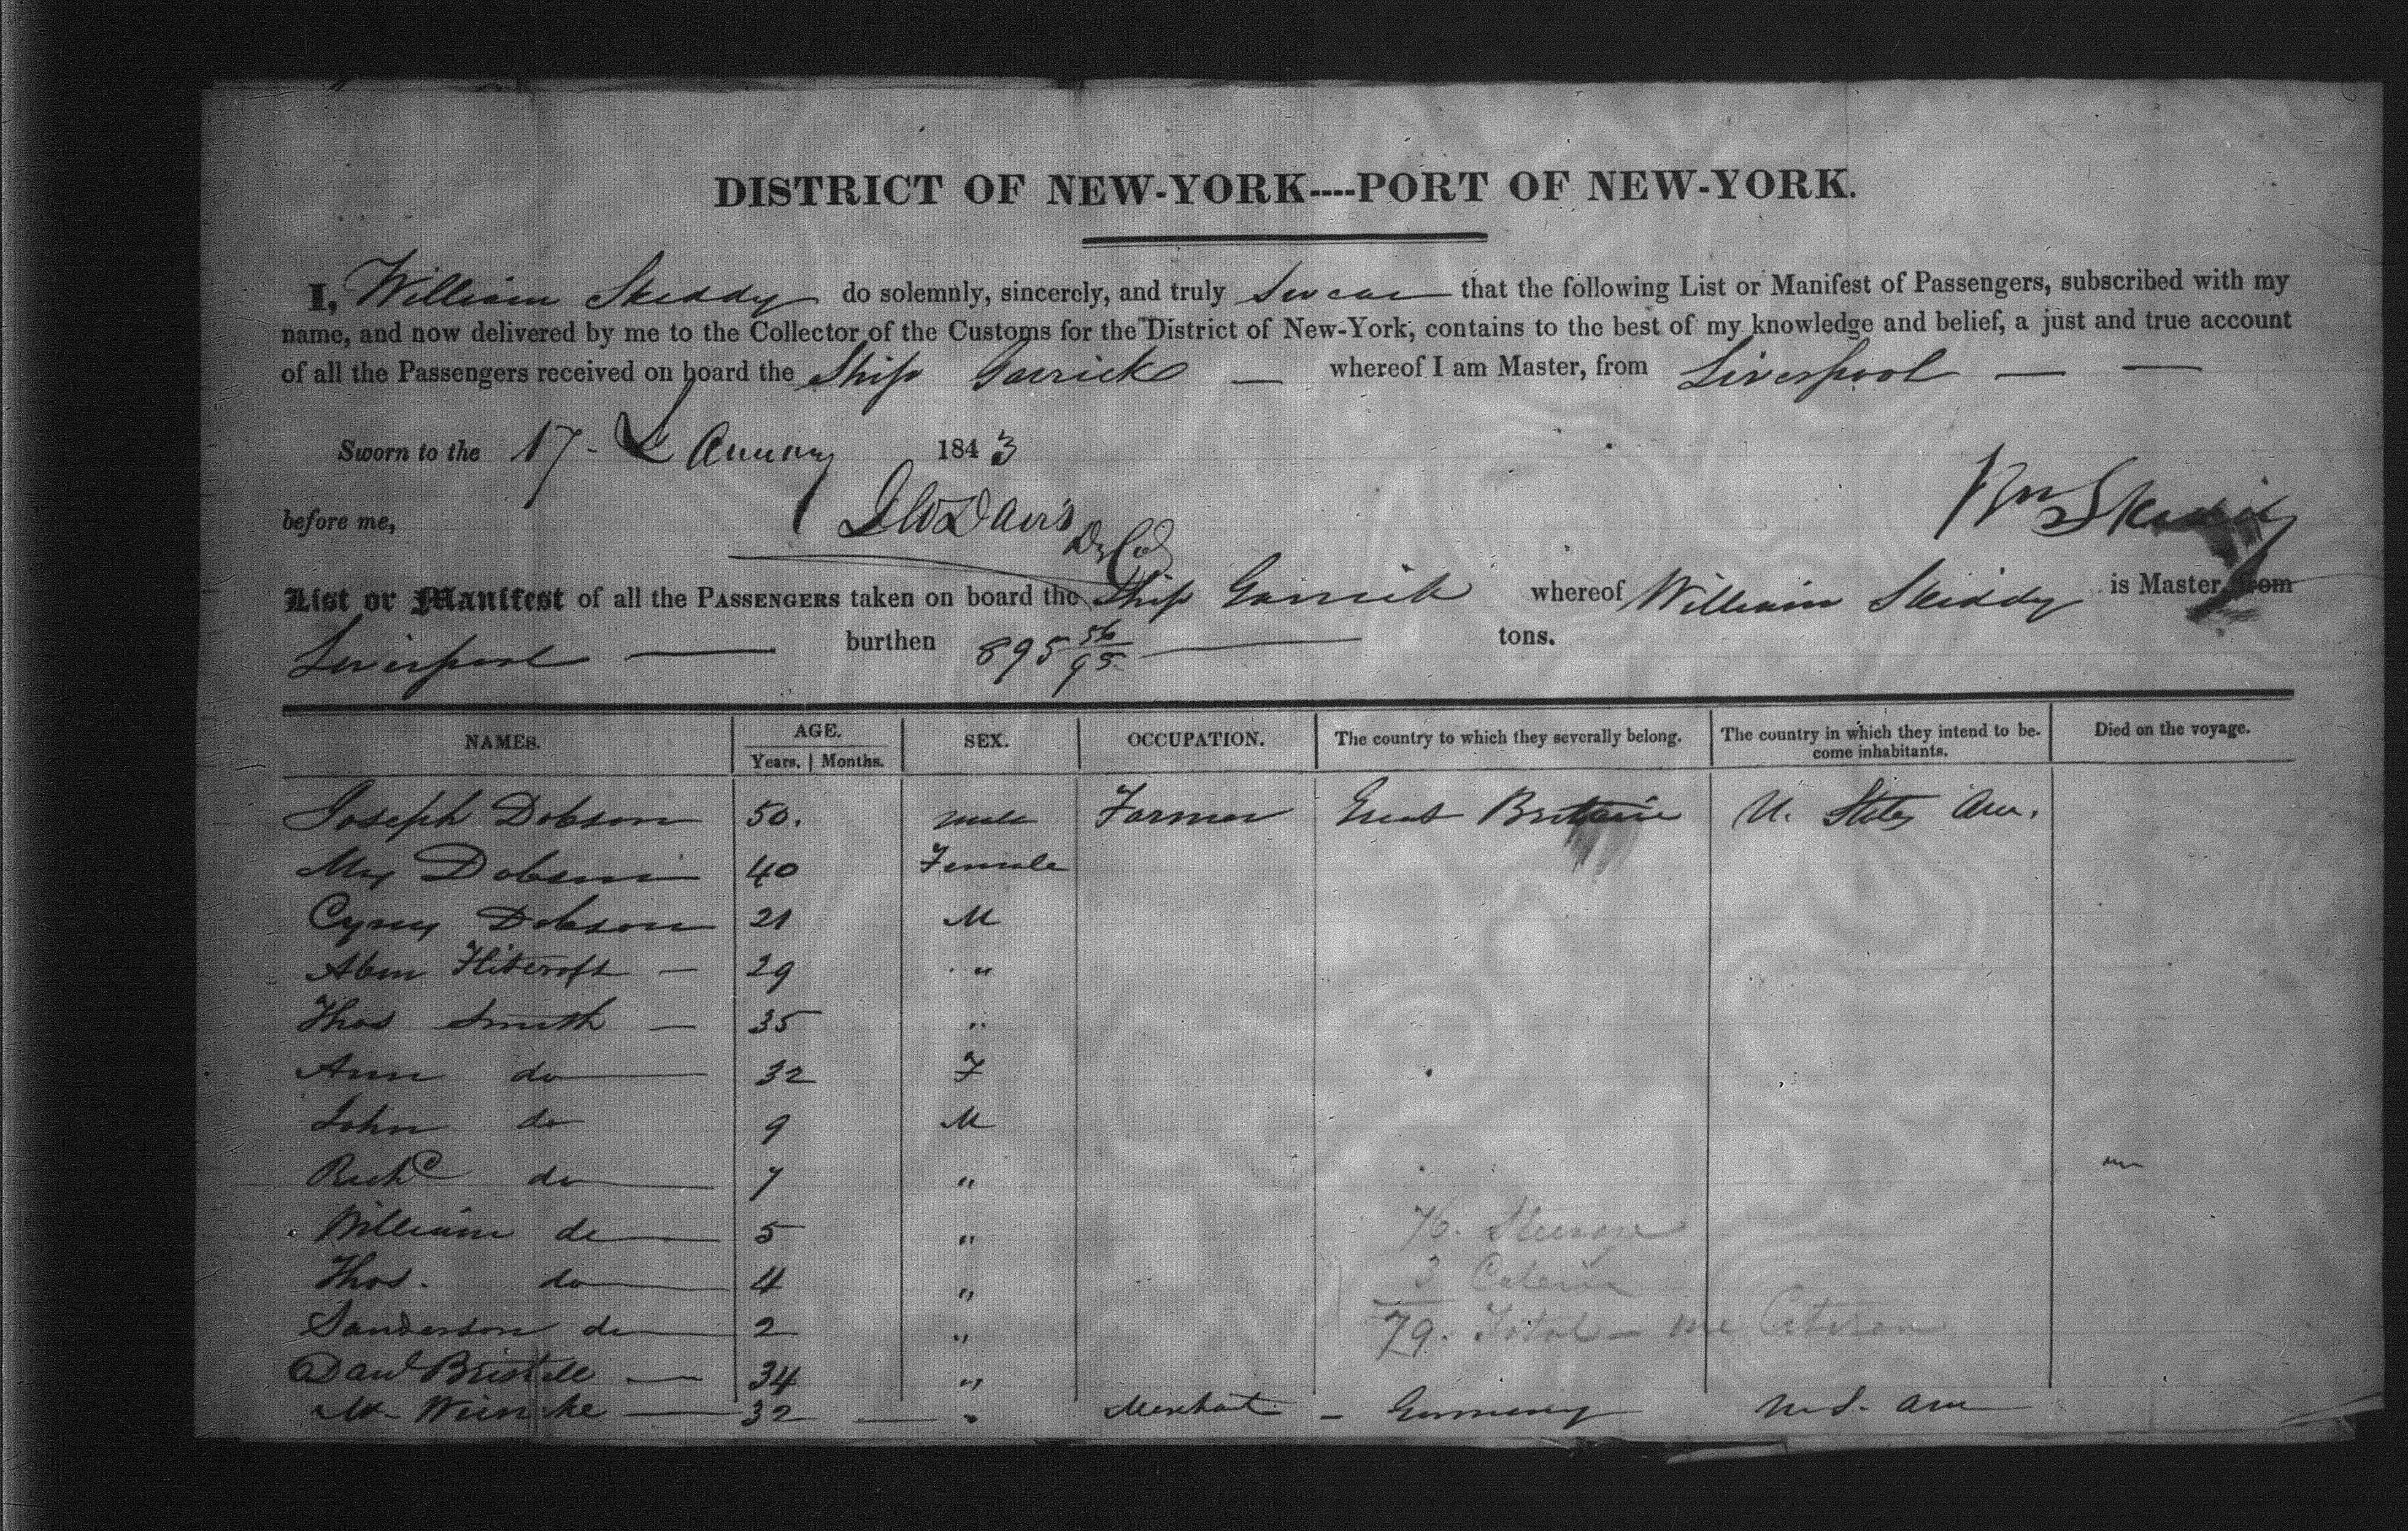 DISTRICT OF NEW-YORK----PORT OF NEW-YORK.
I, William Skiddy do solemnly, sincerely, and truly Swear that the following List or Manifest of Passengers, subscribed with my
name, and now delivered by me to the Collector of the Customs for the District of New-York, contains to the best of my knowledge and belief, a just and true account
of all the Passengers received on board the Ship Garrick — whereof I am Master, from Liverpool — —
Sworn to the 17- January 1843
Wm Skiddy
before me, Davis
List or Manifest of all the PASSENGERS taken on board the Ship Garrick whereof William Skiddy is Master, from
Liverpool — burthen 895 56/95 — tons.
NAMES. AGE. SEX. OCCUPATION. The country to which they severally belong. The country in which they intend to be- Died on the voyage.
Years. | Months. come inhabitants.
Joseph Dobson 50. male Farmer Great Britain U. States Am.
Dobson 40 Female
Cyrus Dobson 21 M
Flitcroft — 29 "
Thos Smith — 35 "
Ann do 32 F
John do 9 M
Richd do 7 "
William do 5 "
Thos. do 4 "
Sanderson do 2 "
Danl 34 "
32 " Merchant - Germany U.S. Am
76. Steerage
3 Cabin
79. Total